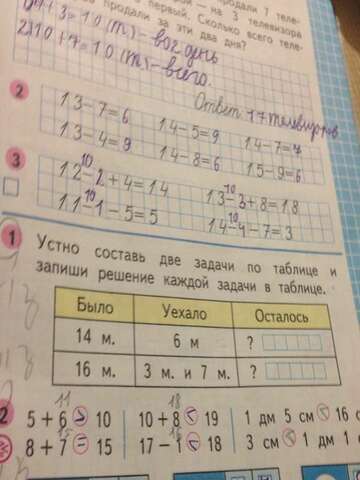 продали 7 теле-
— на 3 телевизора
первый. Сколько всего теле-
продали за эти два дня?
7+3=10(т)-во 2 день
2)10+7=10(т)-всего.
Ответ 17 телевизоров
2
13-7=6 14-5=9 14-7=7
13-4=9 14-8=6 15-9=6
3
10 10
12-2+4=14 13-3+8=18
10 10
11-1-5=5 14-4-7=3
1 Устно составь две задачи по таблице и
запиши решение каждой задачи в таблице.
Было Уехало Осталось
14 м. 6 м ?
16 м. 3 м. и 7 м. ?
11 18
2 5 + 6 > 10 10 + 8 < 19 1 дм 5 см < 16 с
15 16
8 + 7 = 15 17 − 1 < 18 3 см < 1 дм 1